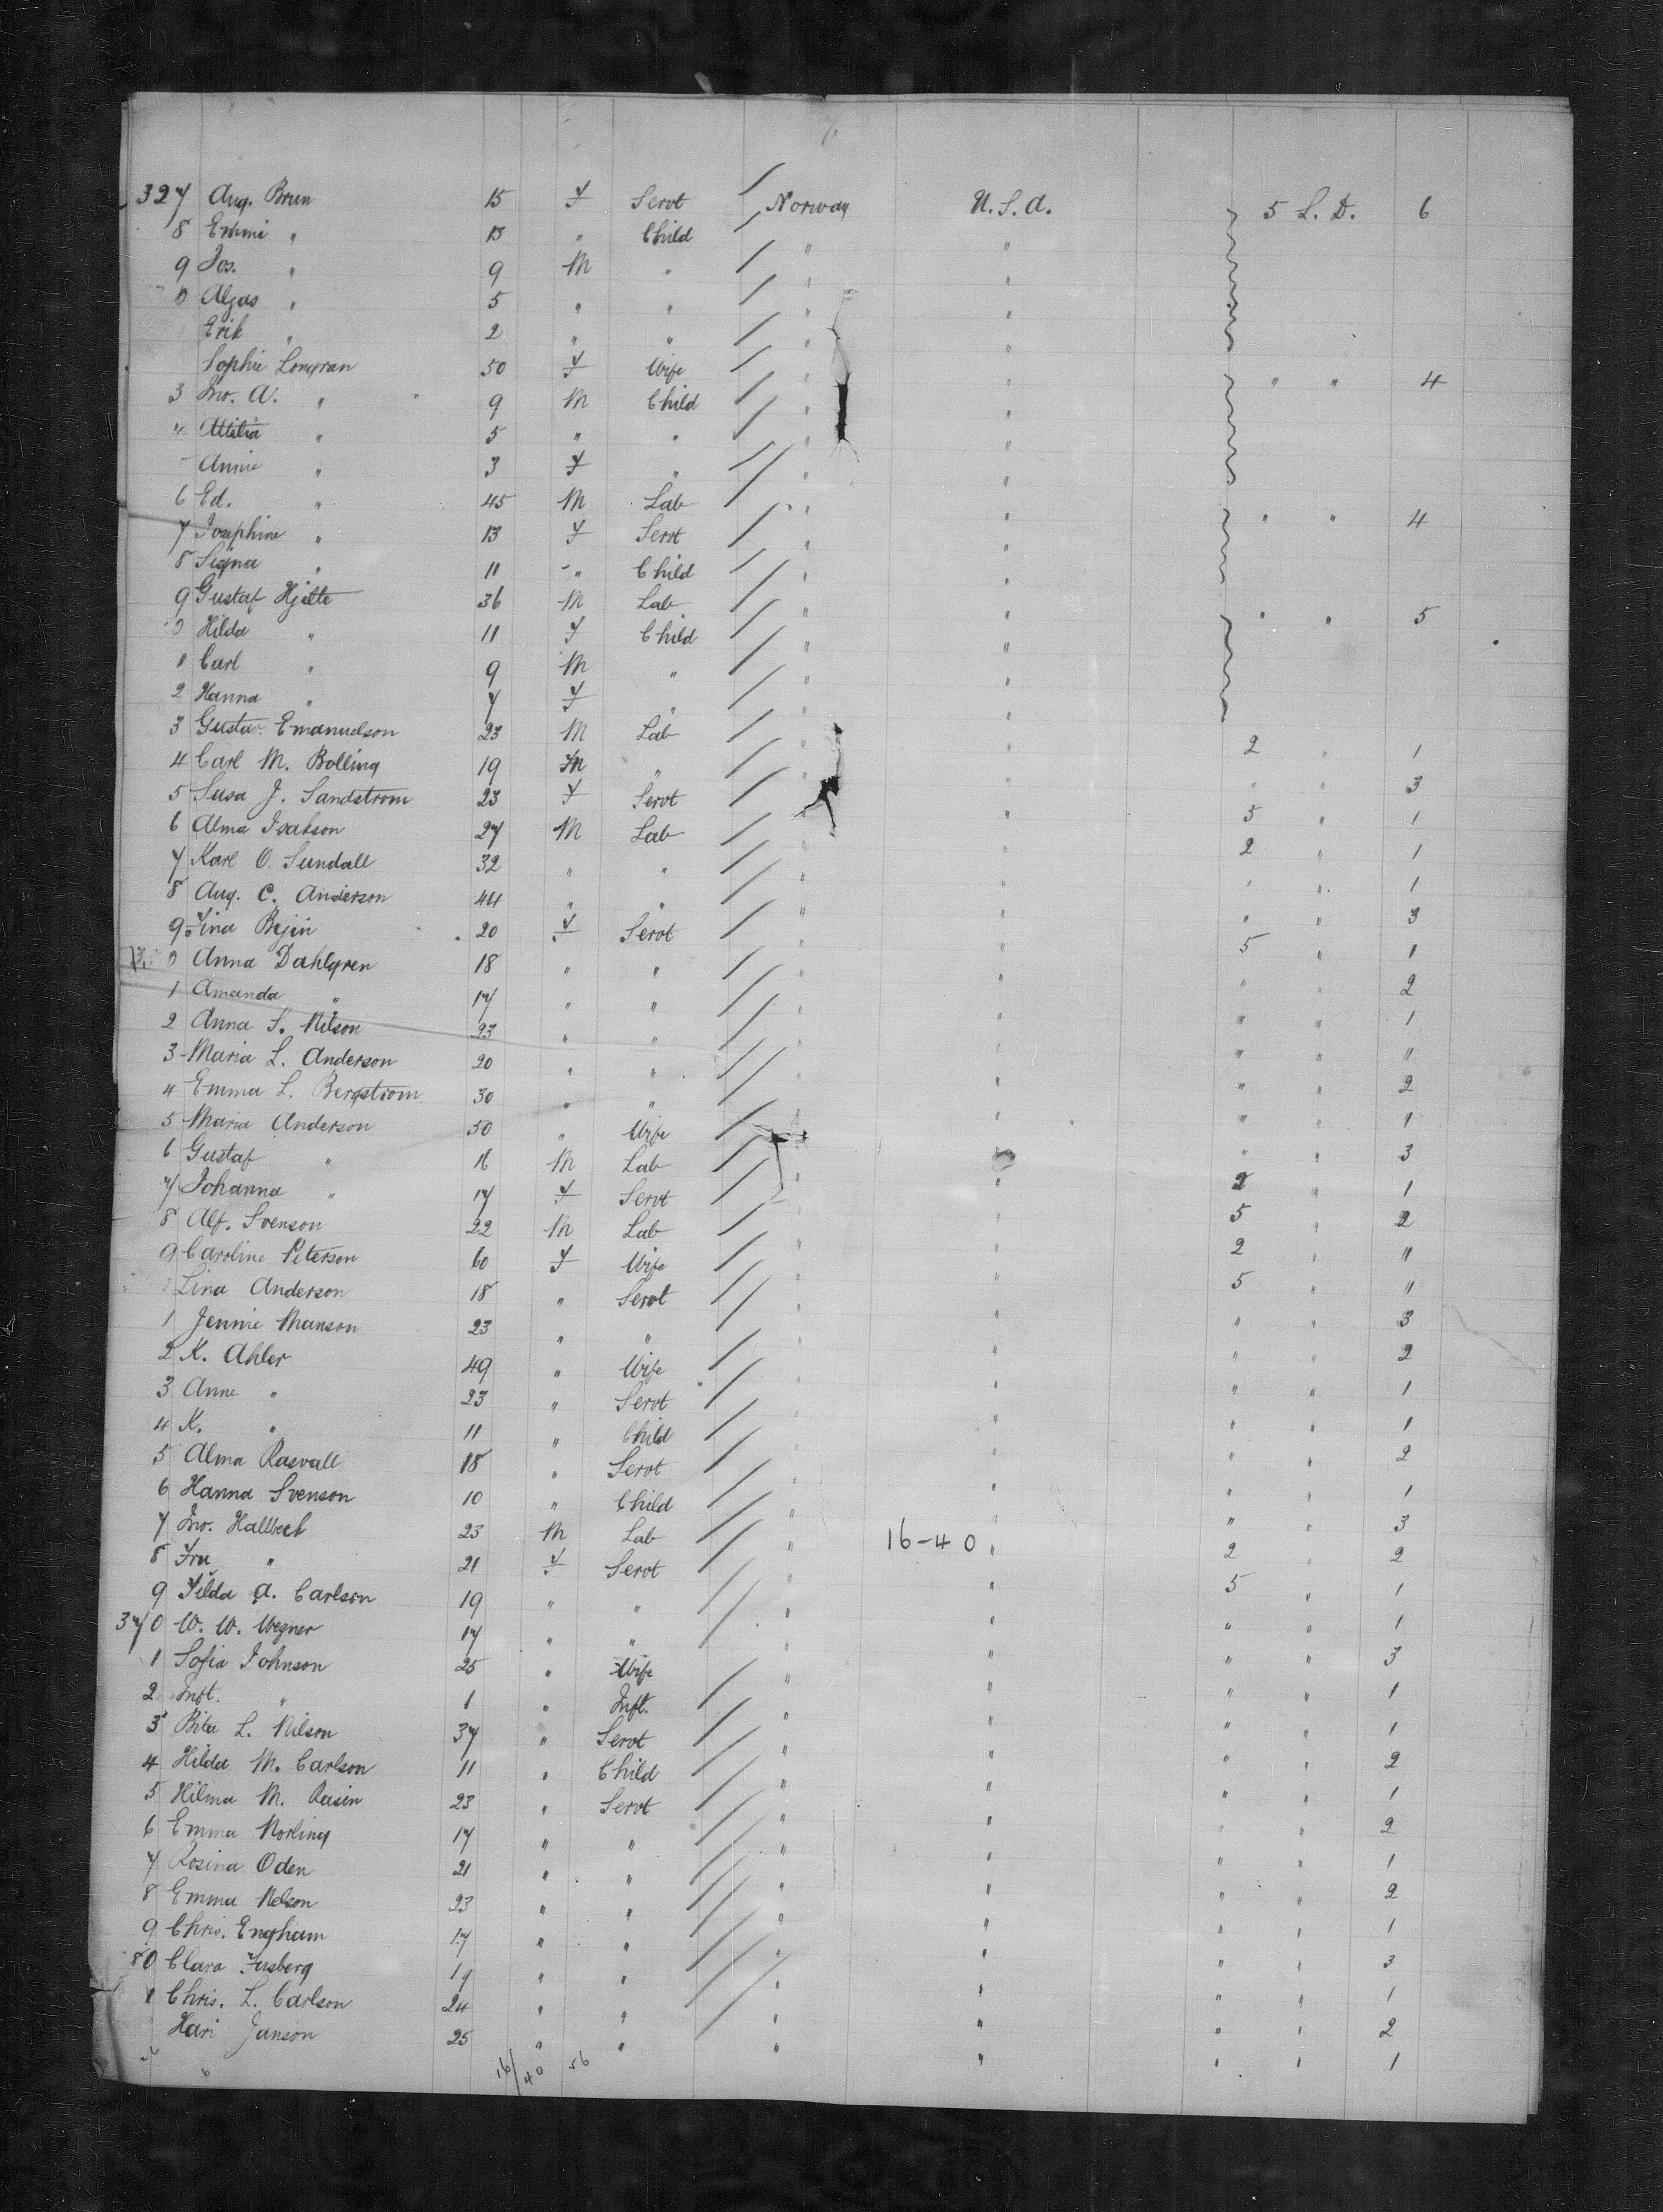 327 Aug. Brun 15 F Servt Norway U.S.A. 5 L. D. 6
8 Emmi " 13 " Child " "
9 Jos. " 9 M " " "
0 Algas " 5 " " " "
Erik " 2 " " " "
Sophie Longran 50 F Wife " " " " 4
3 Jno. A. " 9 M Child " "
4 Attilia " 5 " " " "
Annie " 3 F " " "
6 Ed. " 45 M Lab " " " " 4
7 Josephine " 13 F Servt " "
8 Signa " 11 " Child " "
9 Gustaf Hjelte 36 M Lab " " " " 5
0 Hilda " 11 F Child " "
1 Carl " 9 M " " "
2 Hanna " 7 F " " "
3 Gustav Emanuelson 23 M Lab " " 2 " 1
4 Carl M. Bolling 19 M " " " " " 3
5 Susa J. Sandstrom 23 F Servt " " 5 " 1
6 Alma Isakson 27 M Lab " " 2 " 1
7 Karl O. Sundall 32 " " " " " " 1
8 Aug. C. Anderson 44 " " " " " " 3
9 Fina Bejin 20 F Servt " " 5 " 1
0 Anna Dahlgren 18 " " " " " " 2
1 Amanda " 17 " " " " " " 1
2 Anna S. Nilson 23 " " " " " " "
3 Maria L. Anderson 20 " " " " " " 2
4 Emma L. Bergstrom 30 " " " " " " 1
5 Maria Anderson 50 " Wife " " " " 3
6 Gustaf " 16 M Lab " " 2 " 1
7 Johanna " 17 F Servt " " 5 " 2
8 Alf. Svenson 22 M Lab " " 2 " "
9 Caroline Peterson 60 F Wife " " 5 " "
Lina Anderson 18 " Servt " " " " 3
1 Jennie Manson 23 " " " " " " 2
2 K. Ahler 49 " Wife " " " " 1
3 Anne " 23 " Servt " " " " 1
4 K. " 11 " Child " " " " 2
5 Alma Rasvall 18 " Servt " " " " 1
6 Hanna Svenson 10 " Child " " " " 3
7 Jno. Hallbeck 23 M Lab " 16-40 " 2 " 2
8 Fru " 21 F Servt " " 5 " 1
9 Tilda A. Carlson 19 " " " " " " 1
370 W. W. Wegner 17 " " " " " " 3
1 Sofia Johnson 25 " Wife " " " " 1
2 Inft. " 1 " Inft. " " " " 1
3 Bita L. Nilson 37 " Servt " " " " 2
4 Hilda M. Carlson 11 " Child " " " " 1
5 Hilma M. Rasin 23 " Servt " " " " 2
6 Emma Norling 17 " " " " " " 1
7 Rosina Oden 21 " " " " " " 2
8 Emma Nelson 23 " " " " " " 1
9 Chris. Engham 17 " " " " " " 3
80 Clara Fusberg 19 " " " " " " 1
1 Chris. L. Carlson 24 " " " " " " 2
Hari Janson 25 " " " " " " 1
16/40 56